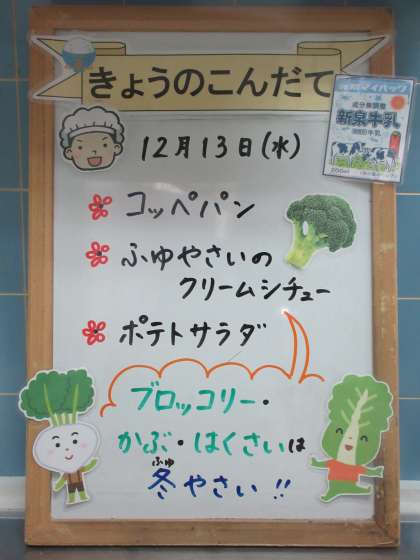 きょうのこんだて
マイパック
成分無調整
新泉牛乳
12月13日(水)
コッペパン
ふゆやさいの
クリームシチュー
ポテトサラダ
ブロッコリー・
かぶ・はくさいは
冬やさい!!
ふゆ